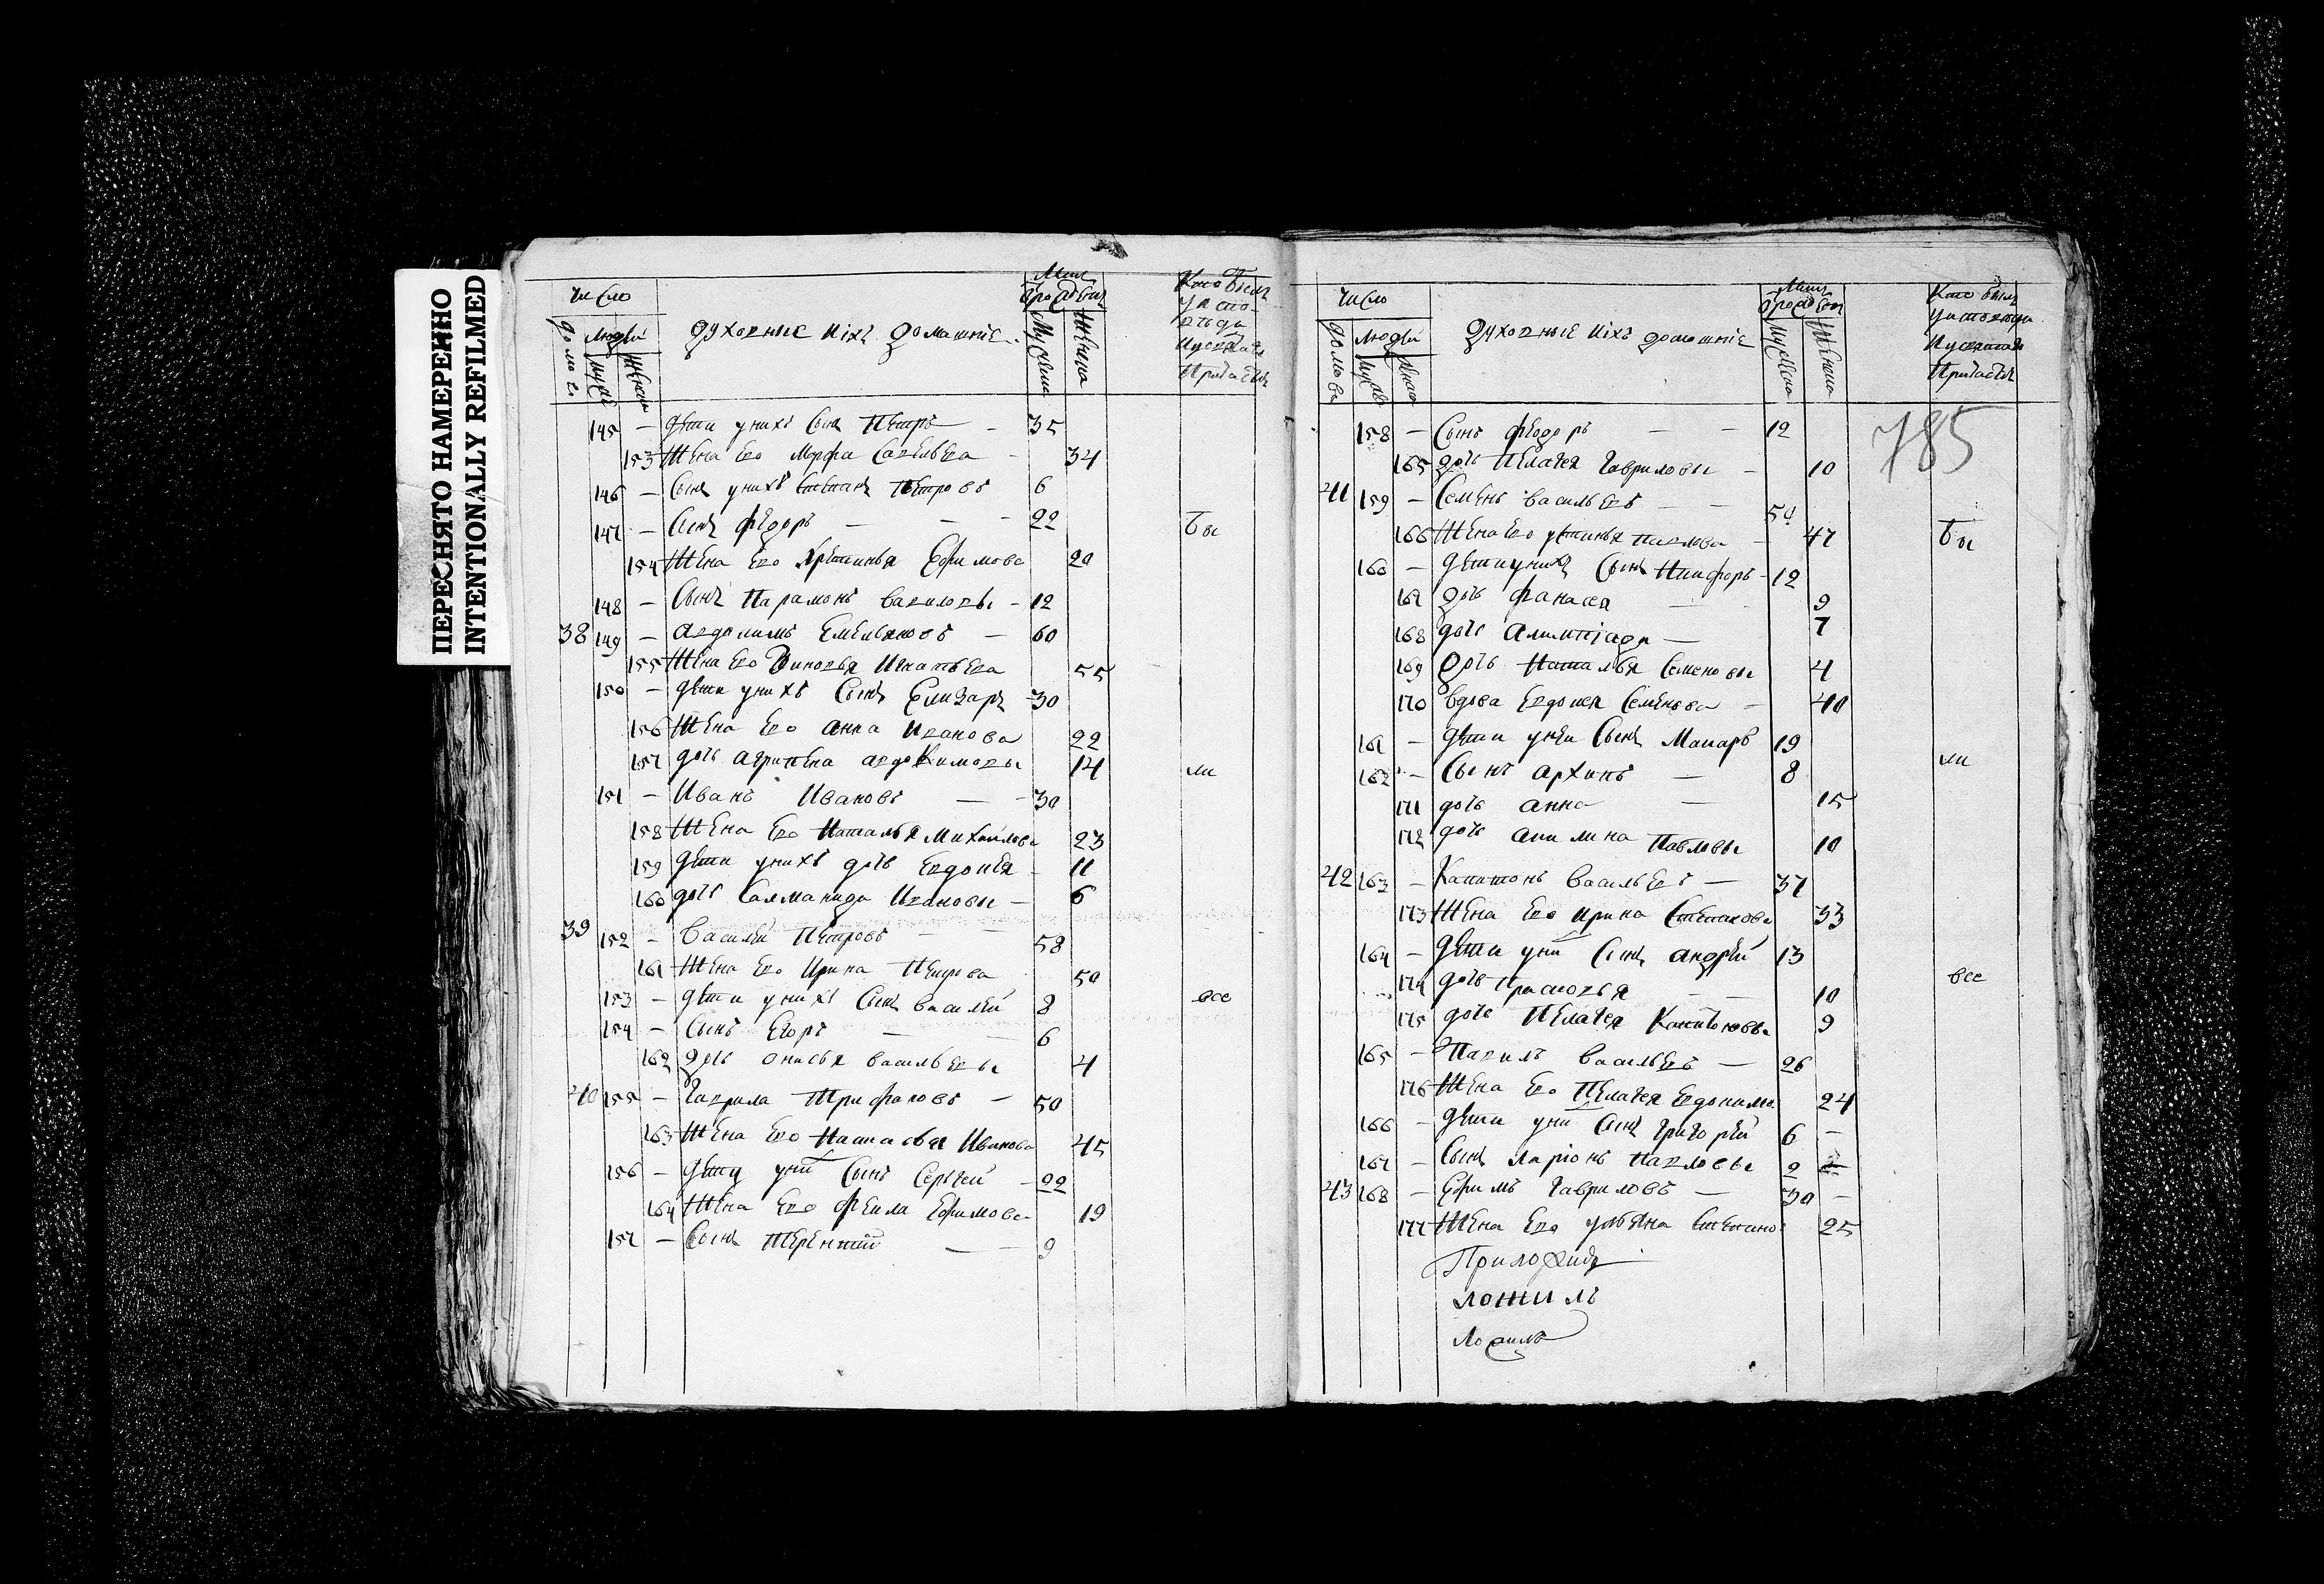 ПЕРЕСНЯТО НАМЕРЕННО
INTENTIONALLY REFILMED
число
домовъ
людей
духовные иїхъ домашнїе
145 — дети унихъ Сынъ Петръ — 35
153 Жена Ево Марфа Савельева — 34
146 — Сынъ унихъ Степанъ Петровъ 6
147 — Сынъ Федоръ — — — 22
154 Жена Ево Хрестинья Ефимова 20
148 — Сынъ Парамонъ Вавиловы — 12
38 149 — Авдокимъ Емельяновъ — 60
155 Жена Ево Зиновья Игнатьева 55
150 — дети унихъ Сынъ Елизаръ — 30
156 Жена Ево Анна Иванова 22
157 дочь Агрипена Авдокимовы 14
151 — Иванъ Ивановъ — — 30
158 Жена Ево Наталья Михайлова 23
159 дети унихъ дочь Евдокїя — 11
160 дочь Саламанида Ивановы — 6
39 152 — Василей Петровъ — — 58
161 Жена Ево Ирина Петрова 50
153 — дети унихъ Сынъ Василей 8
154 — Сынъ Егоръ — — 6
162 дочь Онисья Васильевы 4
40 155 — Гаврила Трифановъ — 50
163 Жена Ево Настасья Иванова 45
156 — дети уни Сынъ Сергей — 22
164 Жена Ево Фекла Ефимова 19
157 — Сынъ Терентей — — 9
Бы
ли
все
число
домовъ
людей
духовные иїхъ домашнїе
785
158 — Сынъ Федоръ — — 12
165 дочь Пелагея Гавриловы — 10
41 159 — Семенъ Васильевъ — — 50
166 Жена Ево устинья Павлова — 47
160 — дети унихъ Сынъ Никифоръ — 12
167 дочь Фанасея — 9
168 дочь Алимпїада — 7
169 дочь Наталья Семеновы 4
170 вдова Евдокея Семенова — 40
161 — дети унеи Сынъ Макаръ 19
162 — Сынъ Архипъ — 8
171 дочь Анна — 15
172 дочь Акилина Павловы 10
42 163 — Капитонъ Васильевъ — 37
173 Жена Ево Ирина Степанова 33
164 — дети уни Сынъ Андрей 13
174 дочь Прасковья — — 10
175 дочь Пелагея Капитоновы 9
165 — Павилъ Васильевъ — 26
176 Жена Ево Пелагея Евдокимо. 24
166 — дети уни Сынъ Григорей 6 —
167 — Сынъ Ларїонъ Павловы 2
43 168 — Ефимъ Гавриловъ — 30 —
177 Жена Ево ульяна Степано 25
Бы
ли
все
ложилъ